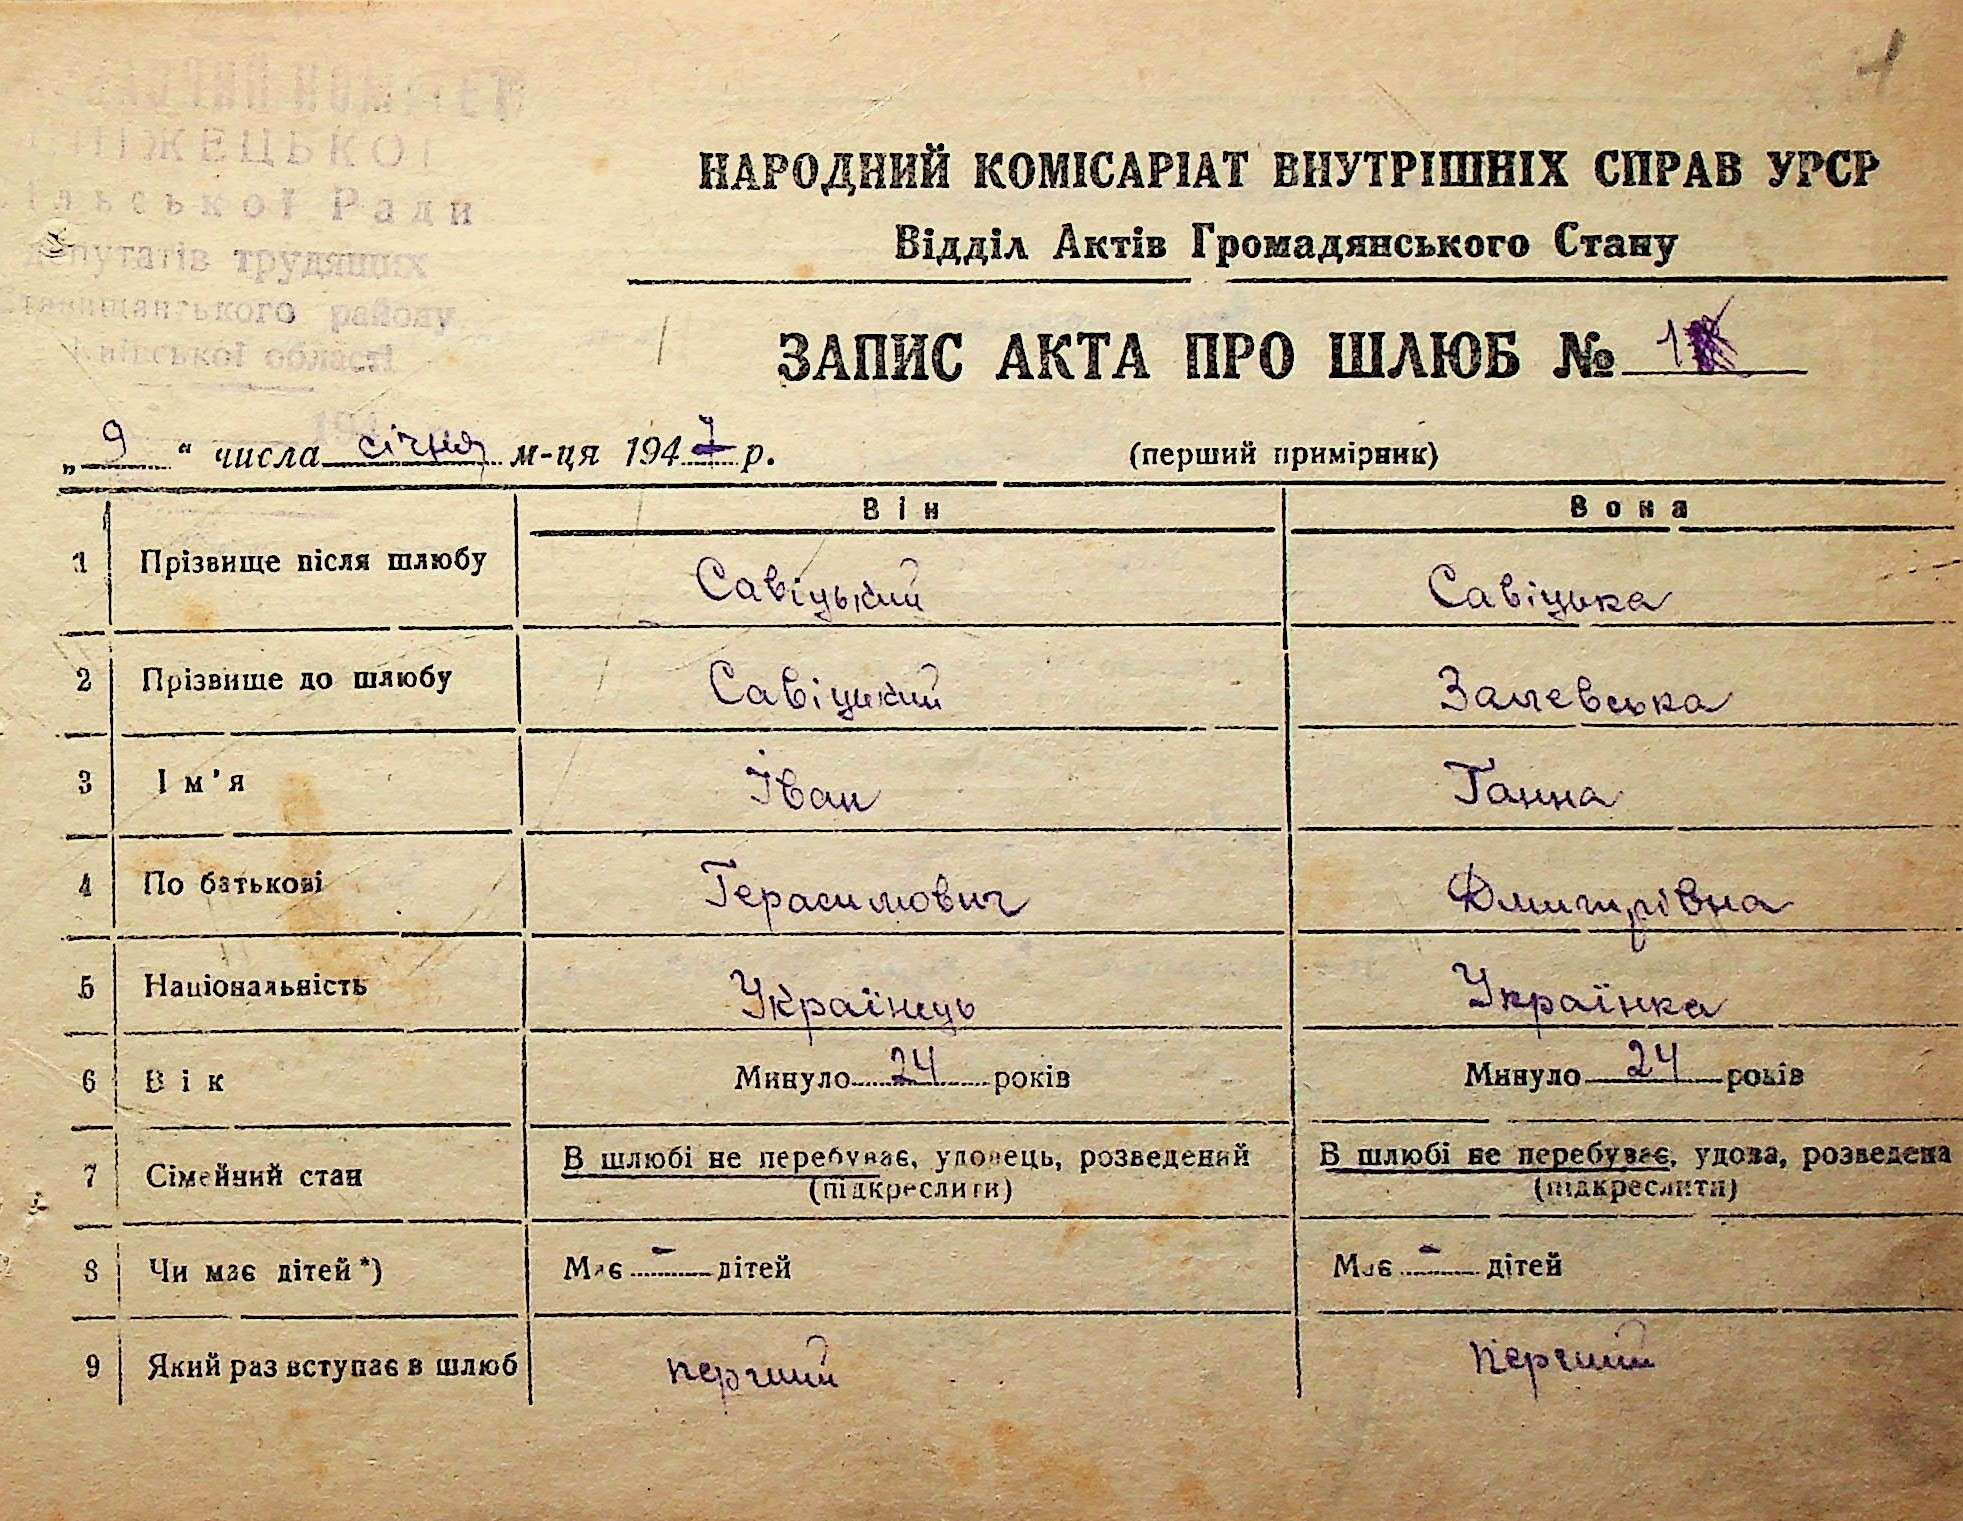 1
КОМІТЕТ
сільської Ради
депутатів трудящих
району
Київської області
194
НАРОДНИЙ КОМІСАРІАТ ВНУТРІШНІХ СПРАВ УРСР
Відділ Актів Громадянського Стану
ЗАПИС АКТА ПРО ШЛЮБ № 1
„ 9 “ числа січня м-ця 1947 р. (перший примірник)
Він Вона
1 Прізвище після шлюбу Савіцький Савіцька
2 Прізвище до шлюбу Савіцький Залевська
3 Ім’я Іван Ганна
4 По батькові Герасимович Дмитрівна
5 Національність Українець Українка
6 Вік Минуло 24 років Минуло 24 років
7 Сімейний стан В шлюбі не перебуває, удовець, розведений В шлюбі не перебуває, удова, розведена
(підкреслити) (підкреслити)
8 Чи має дітей*) Має – дітей Має – дітей
9 Який раз вступає в шлюб перший перший